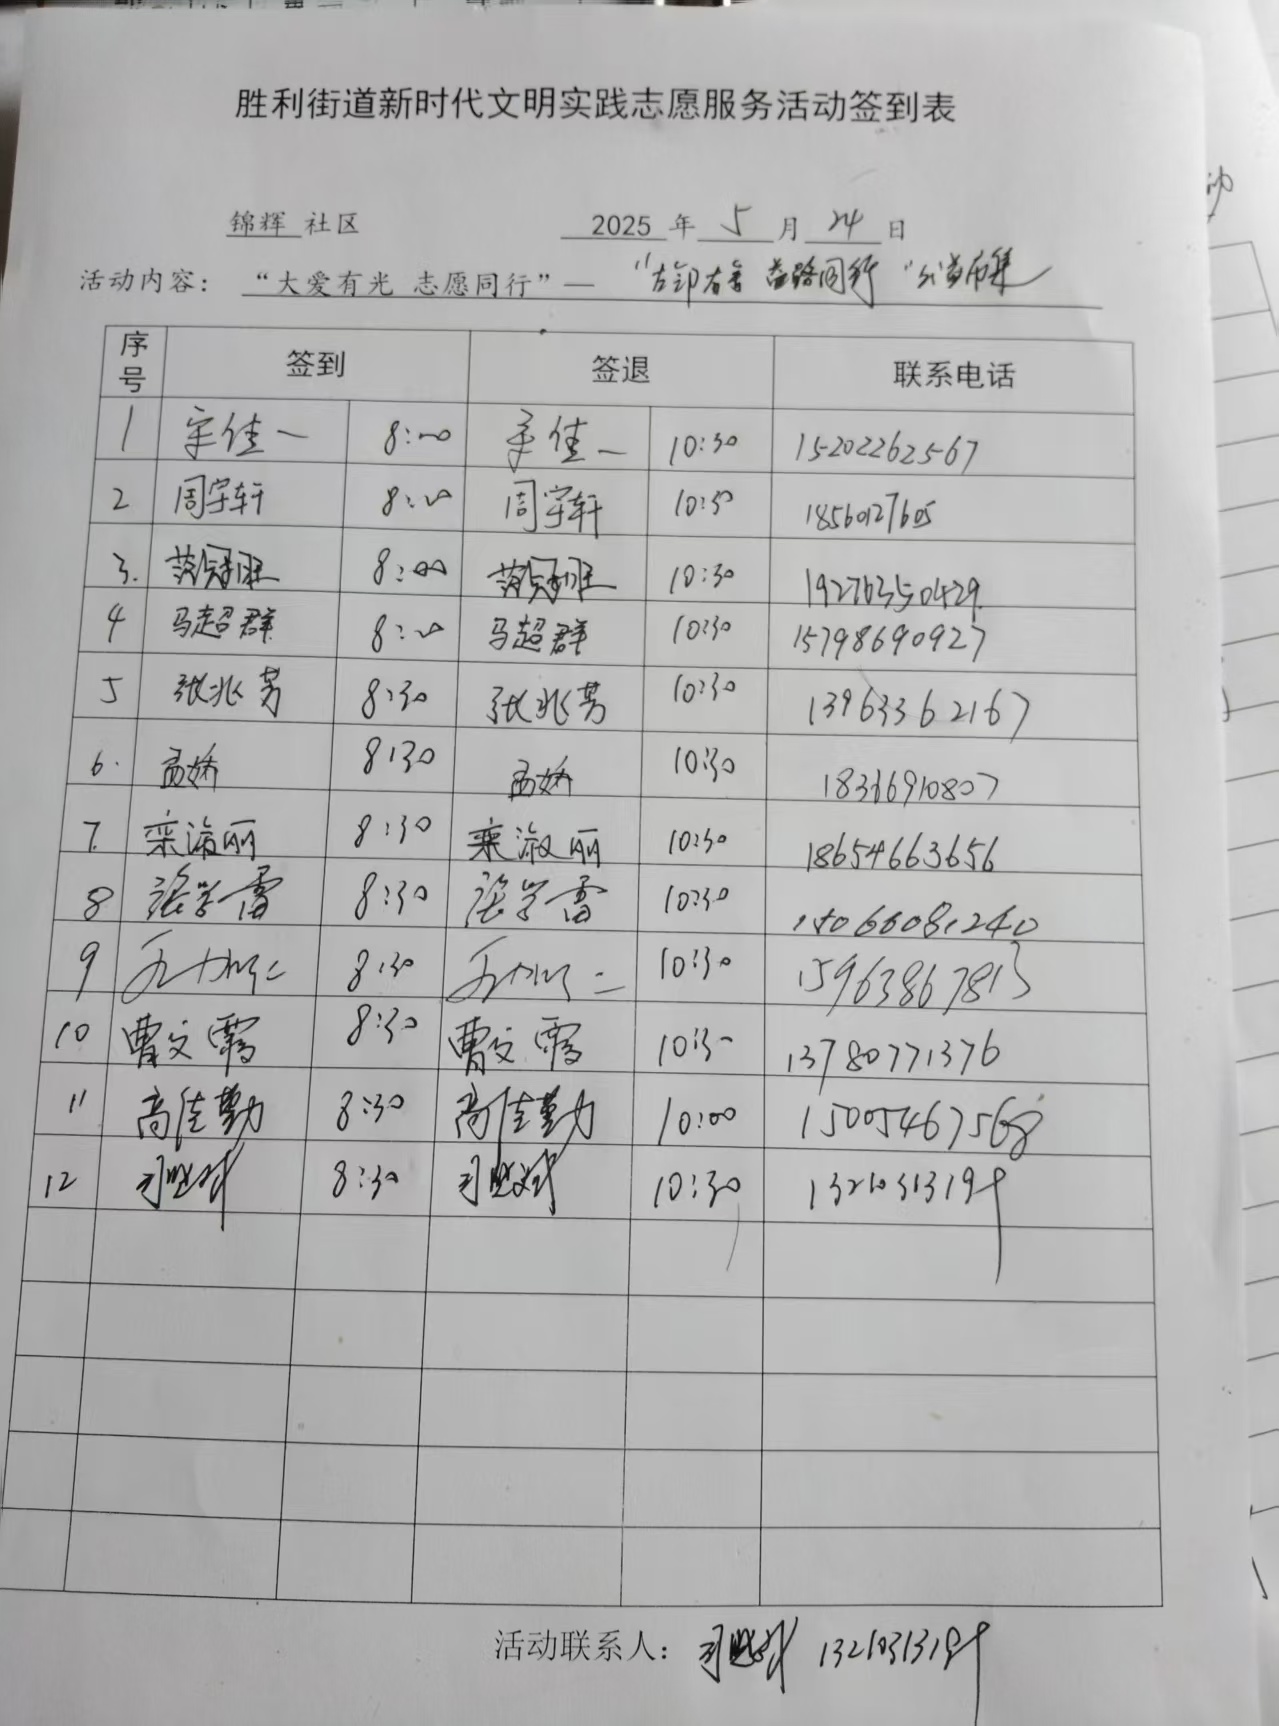 胜利街道新时代文明实践志愿服务活动签到表
锦辉 社区 2025 年 5 月 24 日
活动内容: “大爱有光 志愿同行”— “左邻右舍 益路同行”公益市集
序号 签到 签退 联系电话
1 佳一 8:00 佳一 10:30 15202262567
2 周宇轩 8:00 周宇轩 10:30 18560127605
3. 8:00 10:30 19276350429
4 马超群 8:00 马超群 10:30 15798690927
5 张兆芳 8:30 张兆芳 10:30 13963362167
6. 孟娇 8:30 孟娇 10:30 18336910807
7. 栾淑丽 8:30 栾淑丽 10:30 18654663656
8 张学雷 8:30 张学雷 10:30 15066081240
9 8:30 10:30 15963867813
10 曹文霞 8:30 曹文霞 10:30 13780771376
11 高佳勤 8:30 高佳勤 10:00 15005467568
12 8:30 10:30 13210313199
活动联系人: 13210313199